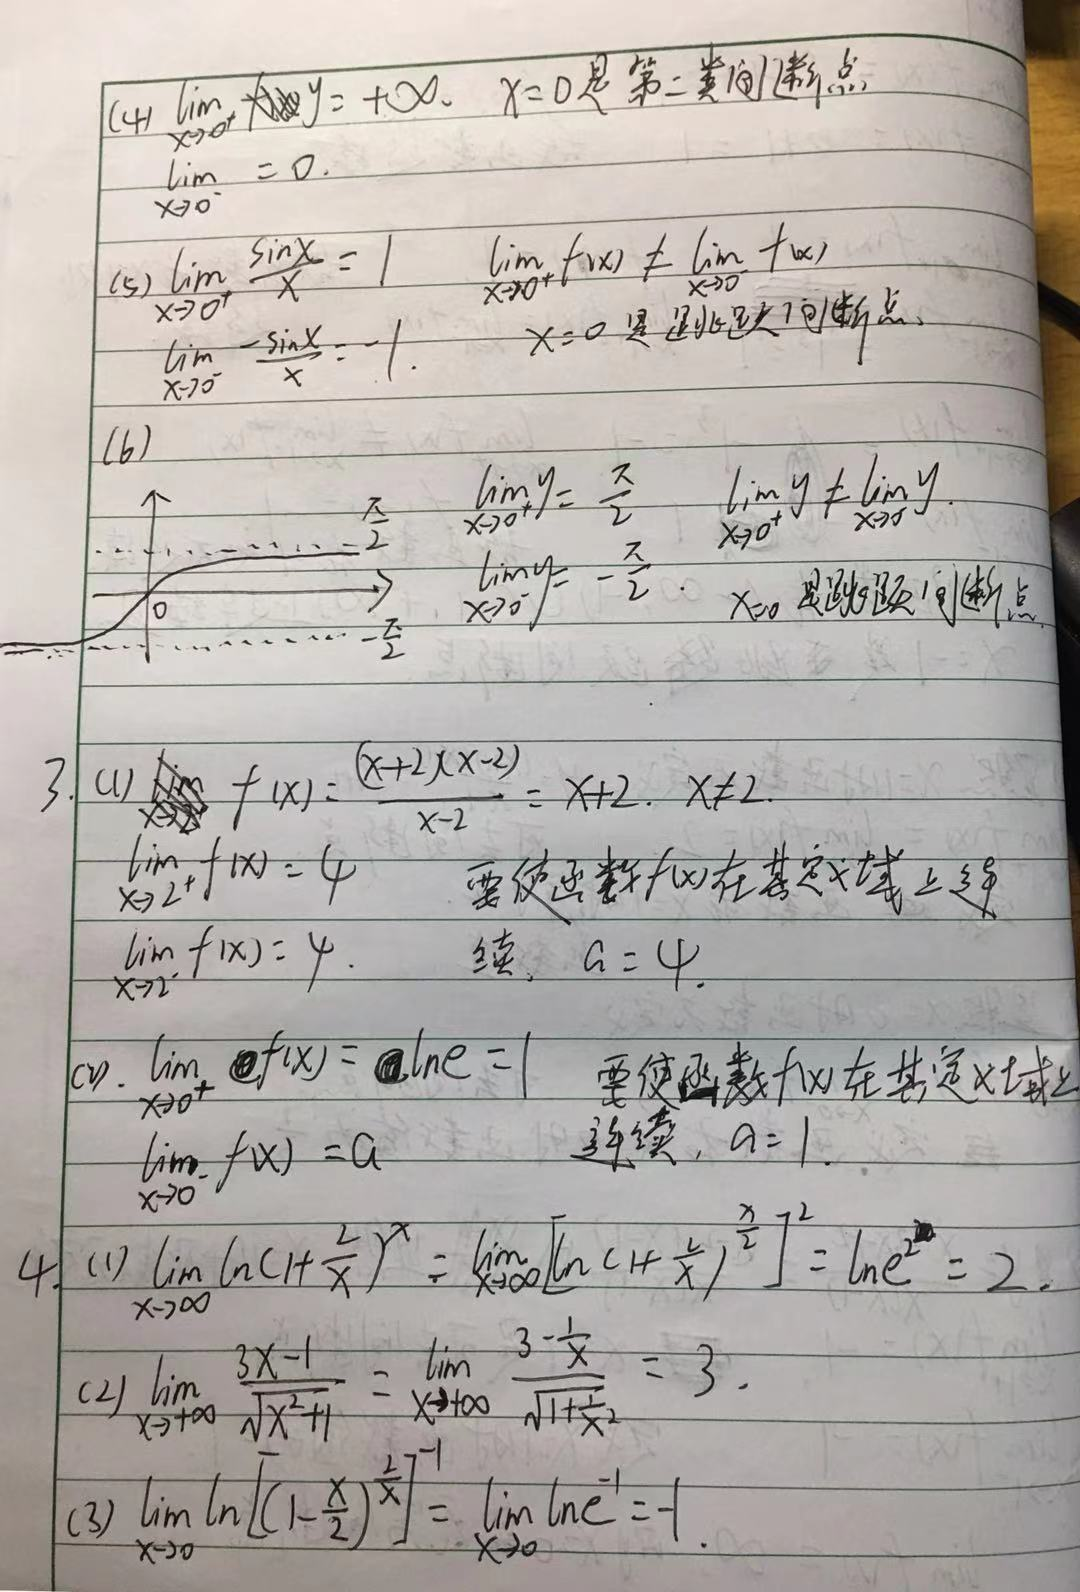 (4) lim x→0⁺ y = +∞. x=0是第二类间断点
lim x→0⁻ = 0.
(5) lim x→0⁺ sinx/x = 1 lim x→0⁺ f(x) ≠ lim x→0⁻ f(x)
lim x→0⁻ -sinx/x = -1. x=0是跳跃间断点.
(6)
π/2 lim x→0⁺ y = π/2 lim x→0⁺ y ≠ lim x→0⁻ y.
0 lim x→0⁻ y = -π/2. x=0是跳跃间断点.
-π/2
3. (1) f(x) = (x+2)(x-2)/x-2 = x+2. x≠2.
lim x→2⁺ f(x) = 4 要使函数f(x)在其定义域上连
lim x→2⁻ f(x) = 4. 续, a=4.
(2). lim x→0⁺ f(x) = lne = 1 要使函数f(x)在其定义域上
lim x→0⁻ f(x) = a 连续, a=1.
4. (1) lim x→∞ ln(1+2/x)^x = lim x→∞ [ln(1+2/x)^(x/2)]² = lne² = 2.
(2) lim x→+∞ 3x-1/√(x²+1) = lim x→+∞ (3-1/x)/√(1+1/x²) = 3.
(3) lim x→0 ln[(1-x/2)^(2/x)]⁻¹ = lim x→0 lne⁻¹ = -1.